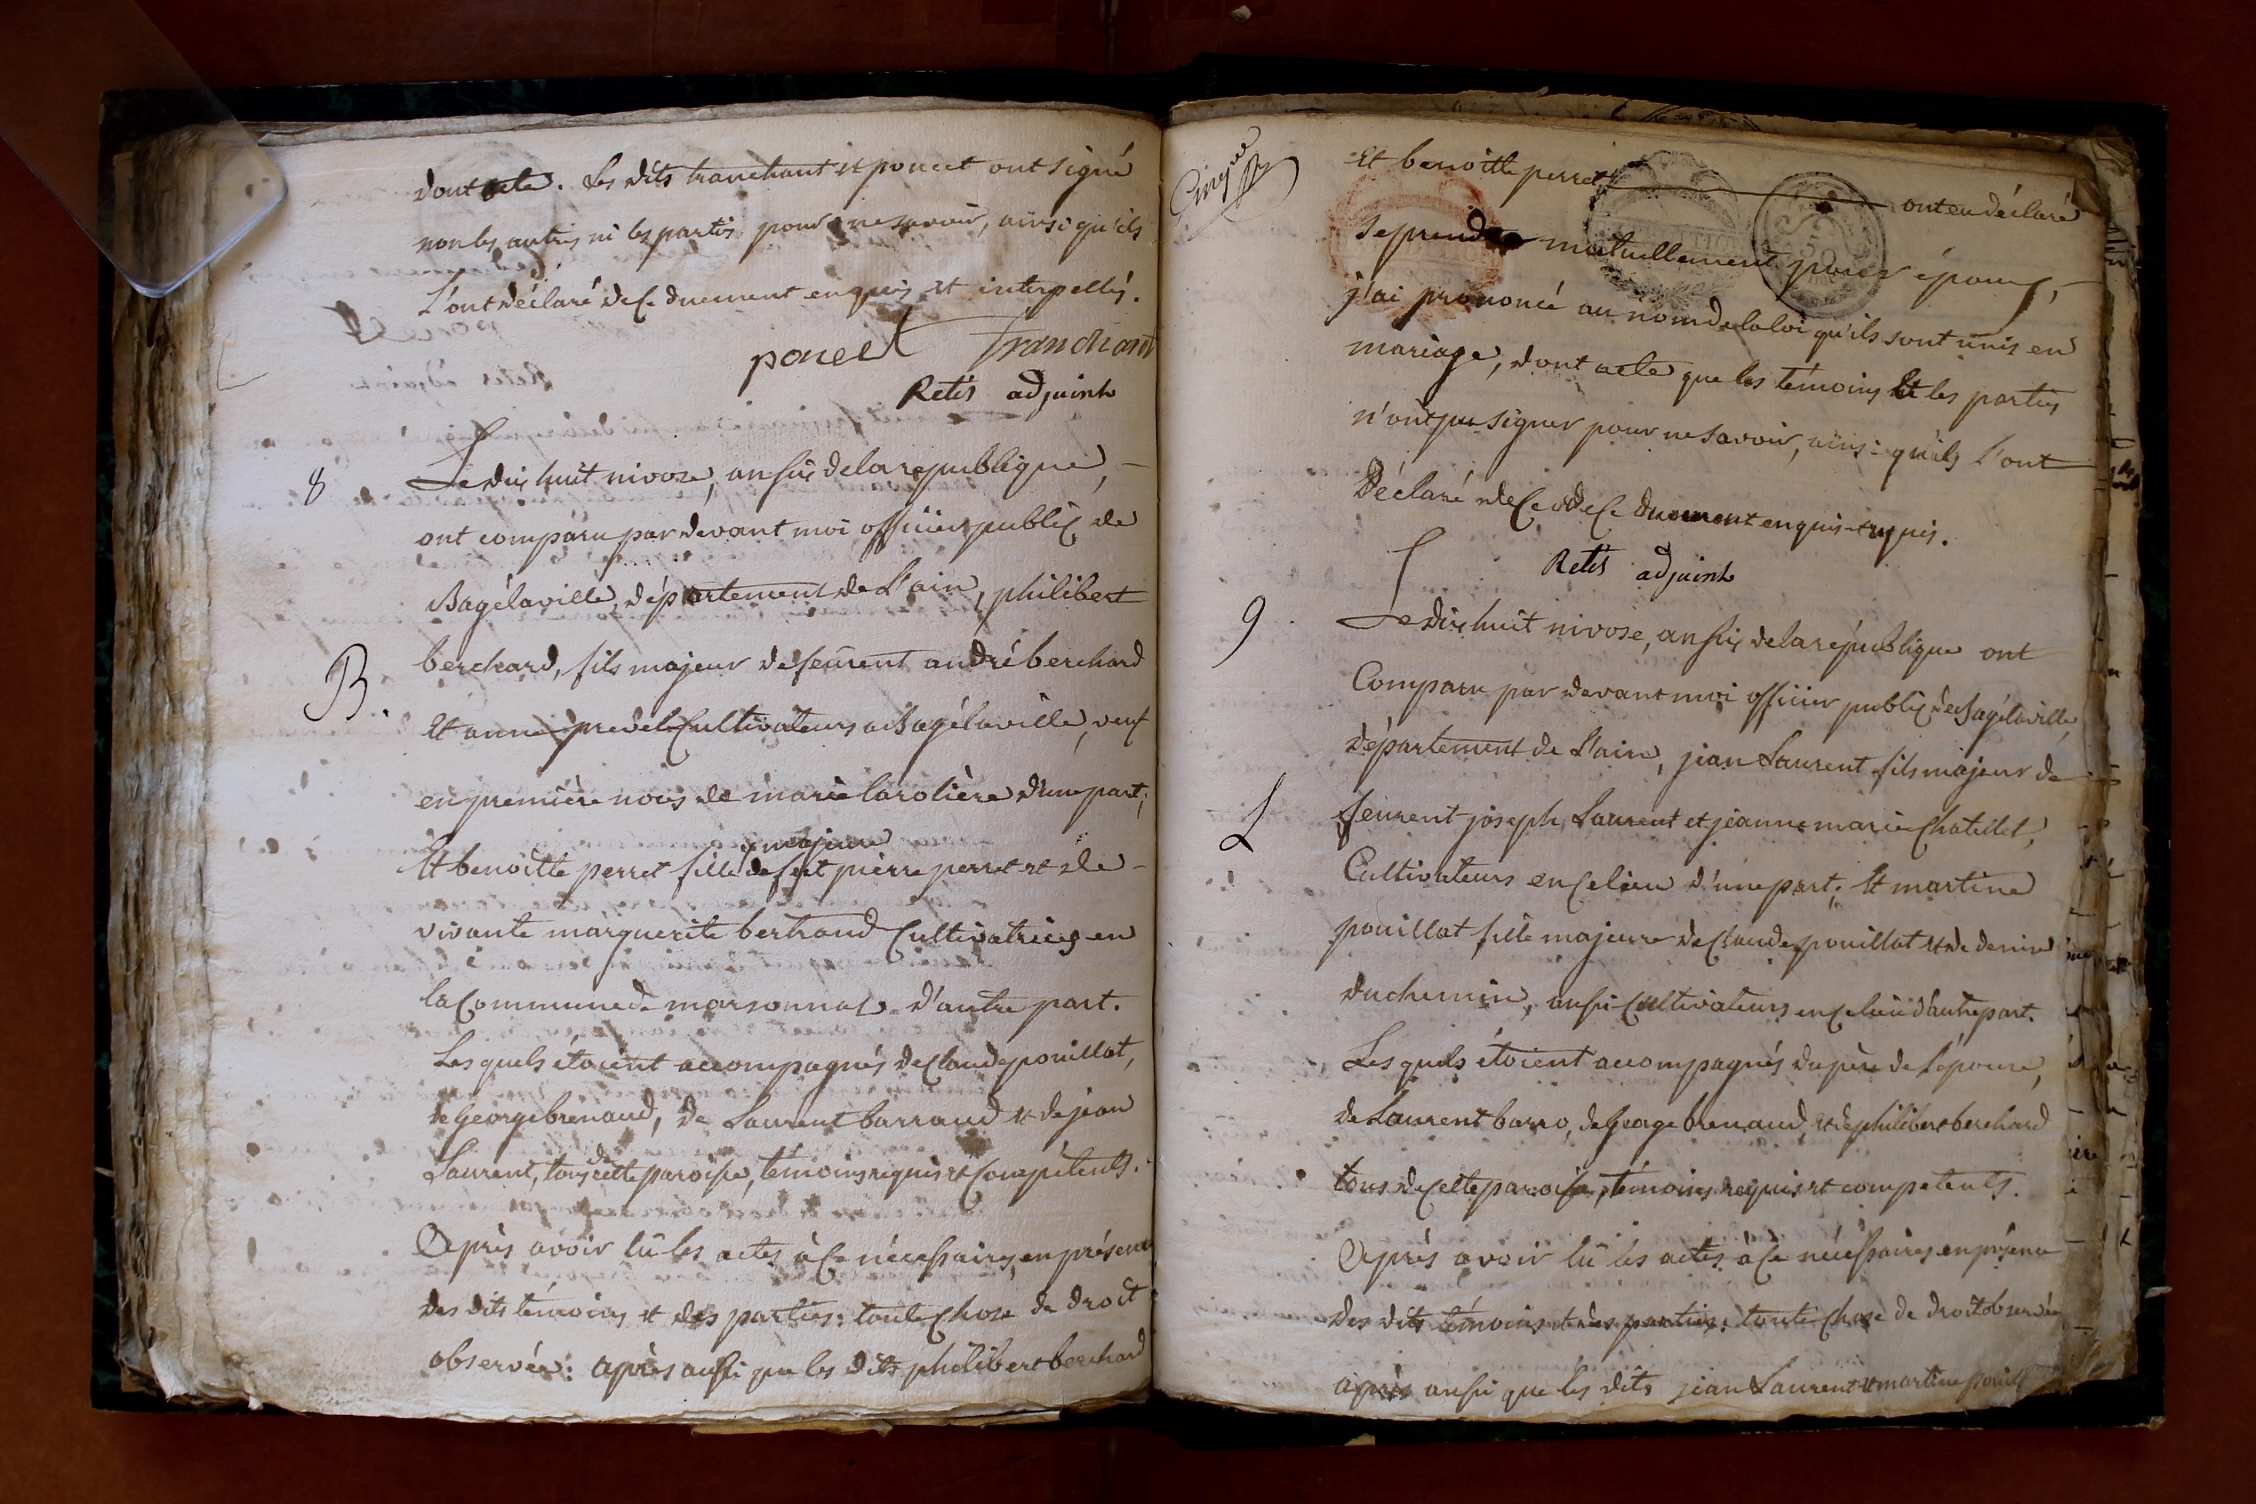 dont acte. Les dits tranchant et poncet ont signé
non les autres ni les partis pour ne savoir, ainsi qu'ils
l'ont déclaré de ce duement enquis et interpellés.
poncet Tranchant
Retis adjoint
8 Le dix huit nivose, an six de la republique,
ont comparu par devant moi officier public de
Bagélaville, département de L'ain, philibert
B. berchard, fils majeur de feurent andré berchard
Et anne prevel Cultivateurs a Bagélaville, veuf
en première nocis de marie larolière d'une part;
majeure
Et benoitte perret fille de feut pierre perret et de
vivante marguerite bertrand Cultivatrices en
la Commune de marsonnas d'autre part.
Les quels étoient accompagnés de Claude pouillat,
de george brenaud, de Laurent barraud et de jean
Laurent, tous de cette paroisse, témoins requis et Compétents.
Après avoir lû les actes à ce nécessaires, en présence
des dits témoins et des parties: toute Chose de droit
observée: après aussi que les dits philibert berchard
Cinque
Et benoitte perret ont eu déclaré
se prendre mutuellement pour époux,
j'ai prononcé au nom de la loi qu'ils sont unis en
mariage, dont acte que les témoins Et les parties
n'ont pu signer pour ne savoir, ainsi qu'ils l'ont
Déclaré de ce de ce duement enquis requis.
Retis adjoint
9 Le dix huit nivose, an six de la république ont
Comparu par devant moi officier public de Bagélaville,
département de L'ain, jean Laurent fils majeur de
L feurent joseph Laurent et jeanne marie Chatillet,
Cultivateurs en ce lieu d'une part; Et martine
pouillat fille majeure de Claude pouillat et de denise
duchemin, aussi Cultivateurs en ce lieu d'autre part.
Les quels étoient accompagnés du père de L'épouse,
de Laurent barro, de George brenaud, et de philibert berchard
tous de cette paroisse, témoins requis et competents.
Après avoir lû les actes à ce nécessaires en présence
des dits témoins et des parties: toute Chose de droit observée
après aussi que les dits jean Laurent et martine pouill